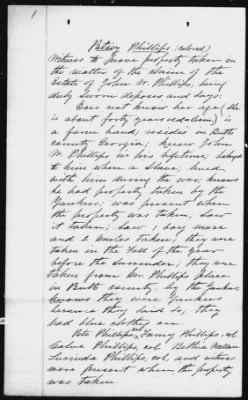 1
Patsey Phillips (colored)
Witness to prove property taken in
the matter of the claim of the
Estate of John W. Phillips, being
duly sworn deposes and says:
Does not know her age (she
is about forty years old) is
a farm hand, resides in Butts
county Georgia; knew John
W. Phillips in his lifetime, belonged
to him when a slave; lived
with him during the war; knows
he had property taken by the
Yankees; was present when
the property was taken; saw
it taken; saw 1 bay mare
and 2 mules taken; they were
taken in the Fall of the year
before the surrender; they were
taken from Mr. Phillips place
in Butts county, by the Yankees
knows they were Yankees
because they said so; they
had blue clothes on.
Pete Phillips and Fanny Phillips, col
Caline Phillips, col. Bethia Wallace
Lucinda Phillips, col, and witness
were present when the property
was taken.